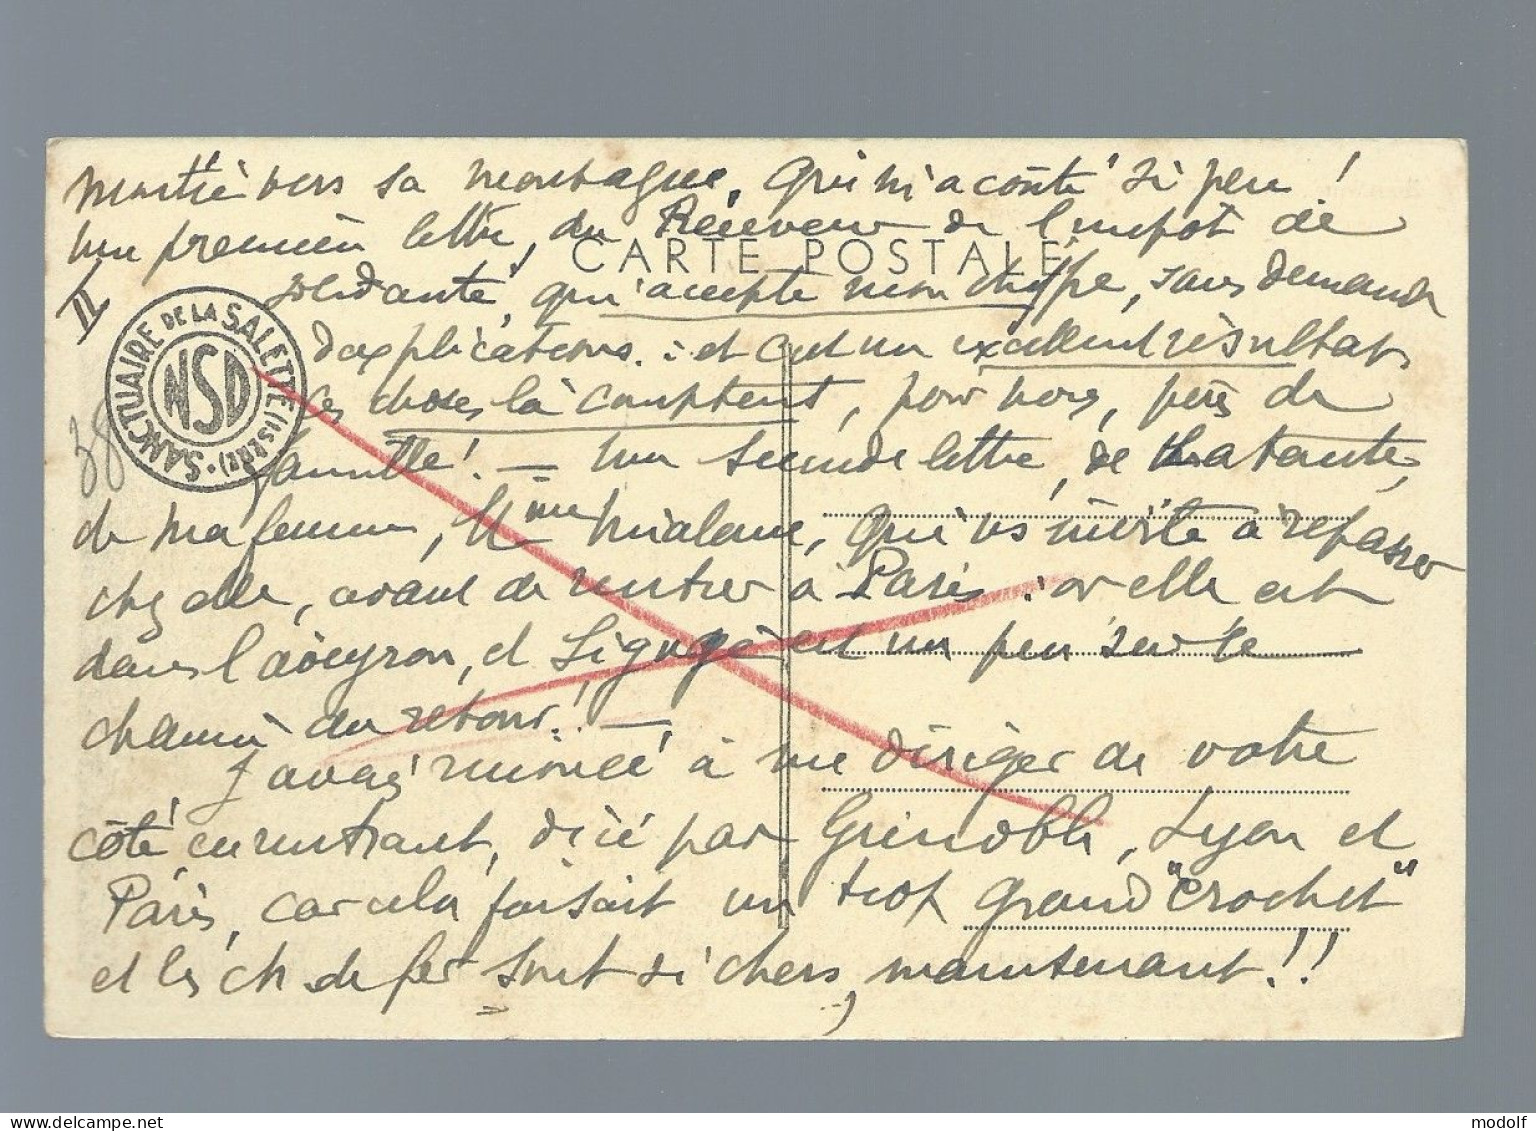 vers sa montagne, qui m'a coûté si peu !
première lettre, du Receveur de l'impôt de
CARTE POSTALE
II
solidarité, qui accepte mon chiffre, sans demander
d'explications. : et c'est un excellent résultat
SANCTUAIRE DE LA SALETTE (ISÈRE)
NSD
Ces choses là comptent, pour nous, pères de
38
famille ! — une seconde lettre, de la tante
de ma femme, Mme qui vs invite à repasser
chez elle, avant de rentrer à Paris : or elle est
dans l'aveyron, et est un peu sur le
chemin du retour ! —
J'avais renoncé à me diriger de votre
côté en rentrant, d'ici par Grenoble, Lyon et
Paris, car cela faisait un trop grand "crochet"
et les ch de fer sont si chers, maintenant !!
modolf